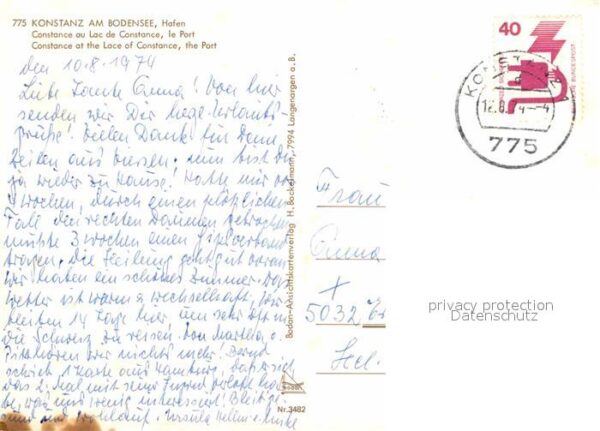 775 KONSTANZ AM BODENSEE, Hafen
Constance au Lac de Constance, le Port
Constance at the Lace of Constance, the Port
den 10.8.1974
Liebe Tante Anna! Von hier
senden wir Dir liebe Urlaubs-
grüße! Vielen Dank für Deine
Zeilen aus Hessen. nun bist Du
ja wieder zu Hause! Hatte mir vor
Wochen, durch einen plötzlichen
Fall den rechten Daumen gebrochen
mußte 3 Wochen einen Gipsverband
tragen. Die Heilung geht gut voran
Wir haben ein schönes Zimmer. Das
Wetter ist warm wechselhaft. Wir
bleiben 14 Tage hier, um
die Schweiz zu reisen. Von Martha
hören wir nichts mehr! Bernd
schrieb 1 Karte aus Hamburg, daß er sich
das 2. Mal mit seiner Freundin verlobt
uns wenig interessiert! Bleib
und wohlauf. Ursula
Bodan-Ansichtskartenverlag H. Bockelmann, 7994 Langenargen a. B.
Nr. 3482
40
DEUTSCHE BUNDESPOST
KONSTANZ 1
12.8.74-4
775
Frau
Anna
X
5032
privacy protection
Datenschutz